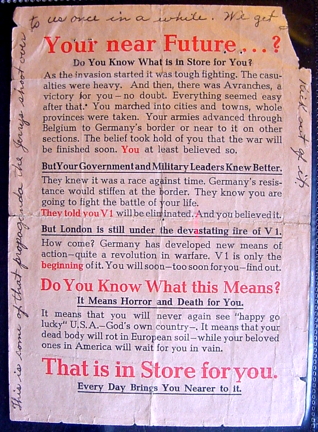 to us once in a while. We get
a
kick out of it
This is some of that propaganda the Jerrys shoot over
Your near Future...?
Do You Know What is in Store for You?
As the invasion started it was tough fighting. The casu-
alties were heavy. And then, there was Avranches, a
victory for you—no doubt. Everything seemed easy
after that. You marched into cities and towns, whole
provinces were taken. Your armies advanced through
Belgium to Germany's border or near to it on other
sections. The belief took hold of you that the war will
be finished soon. You at least believed so.
But Your Government and Military Leaders Knew Better.
They knew it was a race against time. Germany's resis-
tance would stiffen at the border. They know you are
going to fight the battle of your life.
They told you V1 will be eliminated. And you believed it.
But London is still under the devastating fire of V 1.
How come? Germany has developed new means of
action—quite a revolution in warfare. V 1 is only the
beginning of it. You will soon—too soon for you—find out.
Do You Know What this Means?
It Means Horror and Death for You.
It means that you will never again see "happy go
lucky" U.S.A.—God's own country—. It means that your
dead body will rot in European soil—while your beloved
ones in America will wait for you in vain.
That is in Store for you.
Every Day Brings You Nearer to it.